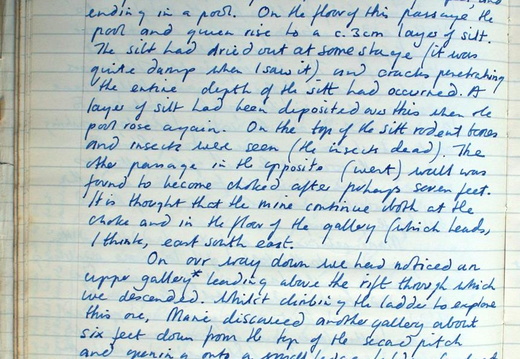 ending in a pool. On the floor of this passage the
pool and given rise to a c.3cm layer of silt.
The silt had dried out at some stage (it was
quite damp when I saw it) and cracks penetrating
the entire depth of the silt had occurred. A
layer of silt had been deposited over this when the
pool rose again. On the top of the silt rodent bones
and insects were seen (the insects dead). The
other passage in the opposite (west) wall was
found to become choked after perhaps seven feet.
It is thought that the mine continues both at the
choke and in the floor of the gallery (which leads,
I think, east south east.
On our way down we had noticed an
upper gallery* leading above the rift through which
we descended. Whilst climbing the ladder to explore
this one, Marie discovered another gallery about
six feet down from the top of the second pitch
and opening onto a small ledge